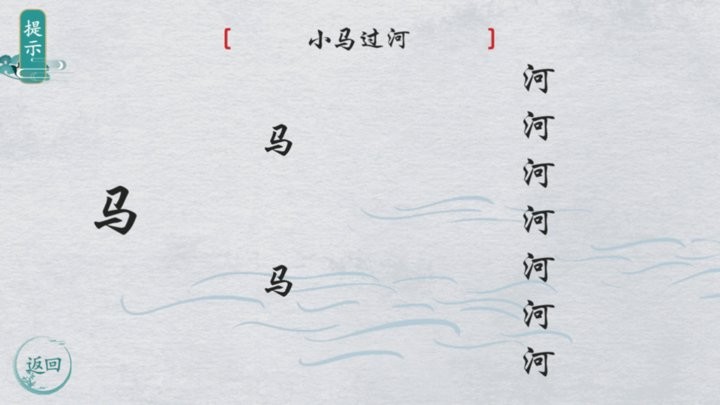 提示
[ 小马过河 ]
马
马
马
河
河
河
河
河
河
河
返回